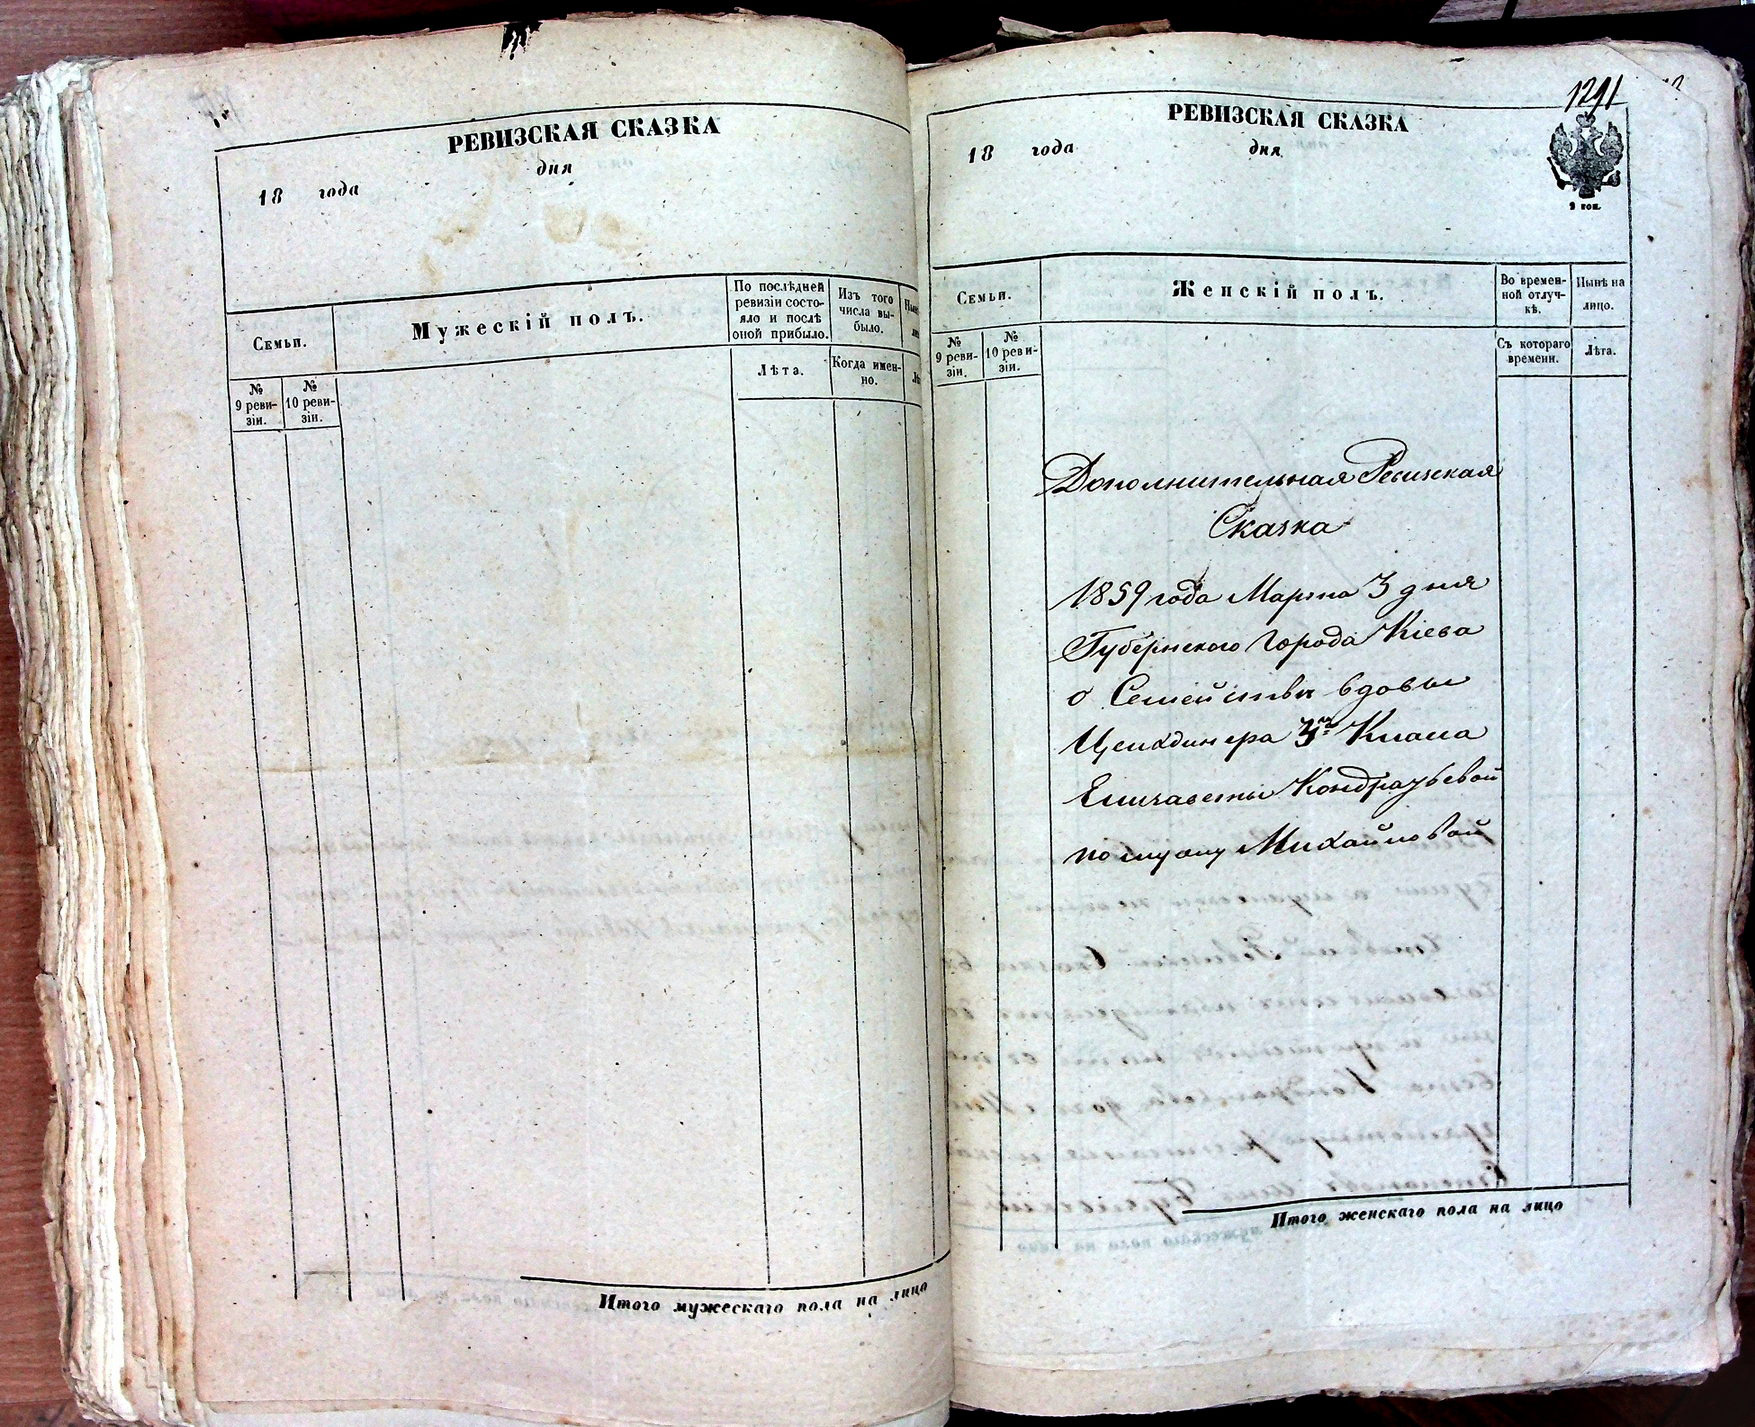 РЕВИЗСКАЯ СКАЗКА
18 года дня
Семьи.
Мужескій полъ.
По послѣдней
ревизіи состо-
яло и послѣ
оной прибыло.
Изъ того
числа вы-
было.
№
9 реви-
зіи.
№
10 реви-
зіи.
Лѣта.
Когда имен-
но.
Итого мужескаго пола на лицо
1291
РЕВИЗСКАЯ СКАЗКА
18 года дня
Семьи.
Женскій полъ.
Во времен-
ной отлуч-
кѣ.
Нынѣ на
лицо.
№
9 реви-
зіи.
№
10 реви-
зіи.
Съ котораго
времени.
Лѣта.
Дополнительная Ревизская
Сказка
1859 года Марта 3 дня
Губернского города Кіева
о Семействѣ вдовы
3 Класа
Елизаветы Кондратьевой
по мужу Михайловой
Итого женскаго пола на лицо